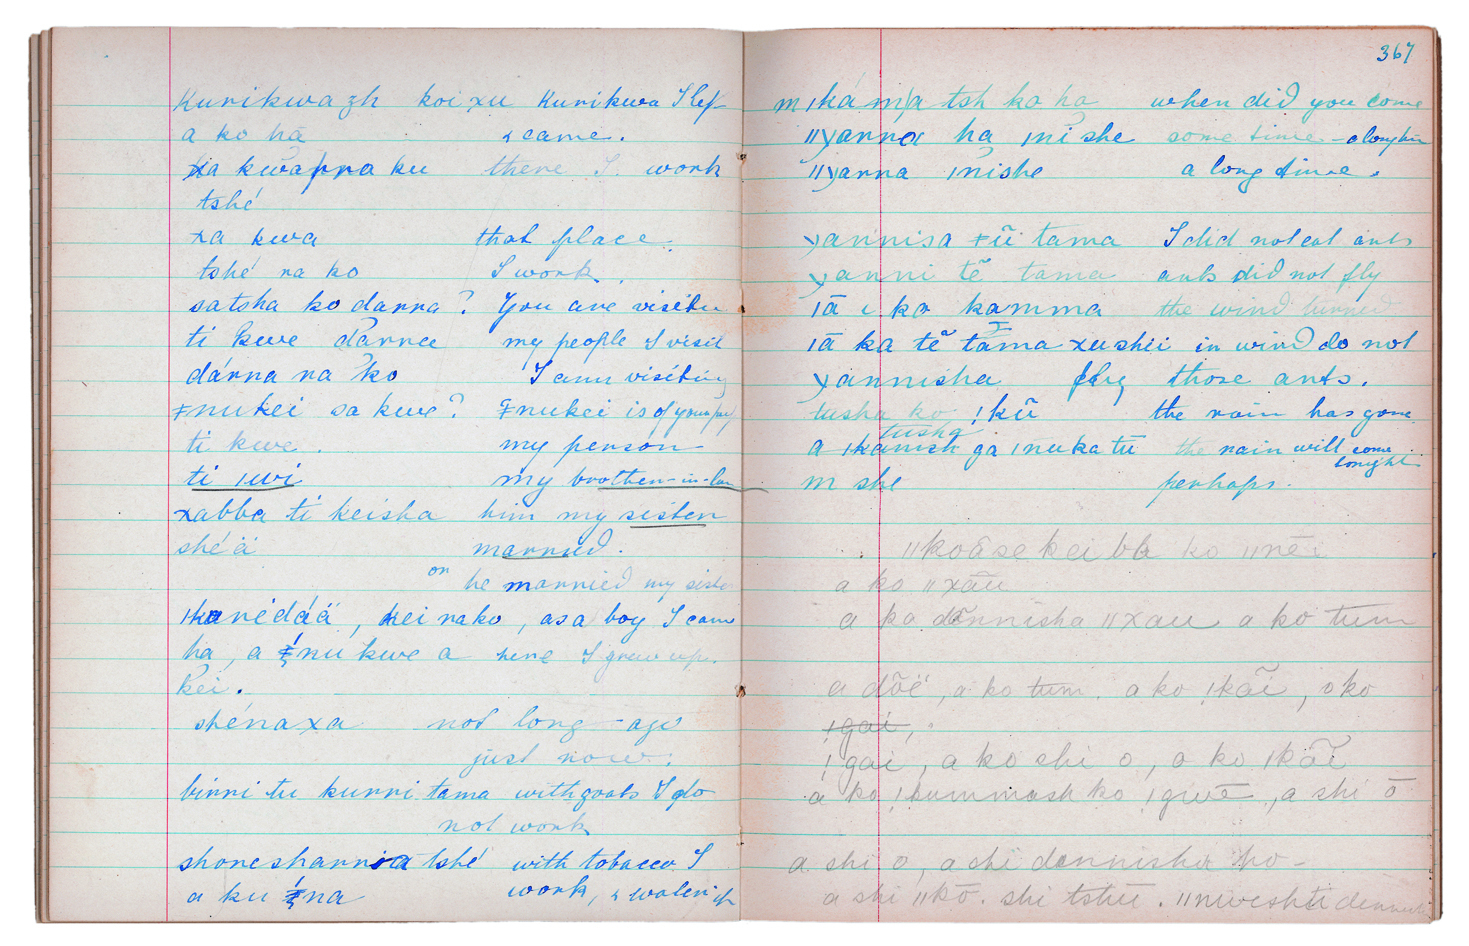 Kurikwa zh koi xu Kurikwa I left
a ko hã & came.
xa kwãnna ku there I. work
tshé
xa kwa that place.
tshé na ko I work.
satsha ko danna? You are visiting
ti kwe danna my people I visit
dánna na ko I am visiting
ǂnukei sa kwe? ǂnukei is of your people
ti kwe. my person
ti ǀwi my brother-in-law
xabba ti keisha him my sister
shé ä married.
or he married my sister
kei na ko, as a boy I came
ha, a nu kwe a here I grew up.
kei.
shéna xa not long-ago
just now.
binni tu kunni tama with goats I do
not work
shoneshannia tshé with tobacco I
a ku na work, & water it
367
m ǀká tsh ko ha when did you come
ǁyanna ha ǀni she some time - a long time
ǁyanna ǀnishe a long time.
yannisa ǂũ tama I did not eat ants
yanni tẽ tama ants did not fly
ǀã i ko kamma the wind turned
ǀã ka tẽ tama xushii in wind do not
yannisha fly those ants.
tusha ko !kũ the rain has gone
tusha
a ga ǀnuka tũ the rain will come
tonight
m she perhaps.
ǁkoãse kei ba ko ǁnẽi
a ko ǁxãu
a ko dõnnisha ǁxau a ko tum
a dõë, a ko tum. a ko ǀkãi, o ko
ǃgai,
ǃgai, a ko shi o, a ko ǀkãi
a ko ko ǃgwẽ, a shi õ
a shi o, a shi dennisha ko -
a shi ǁkõ. shi tshũ.